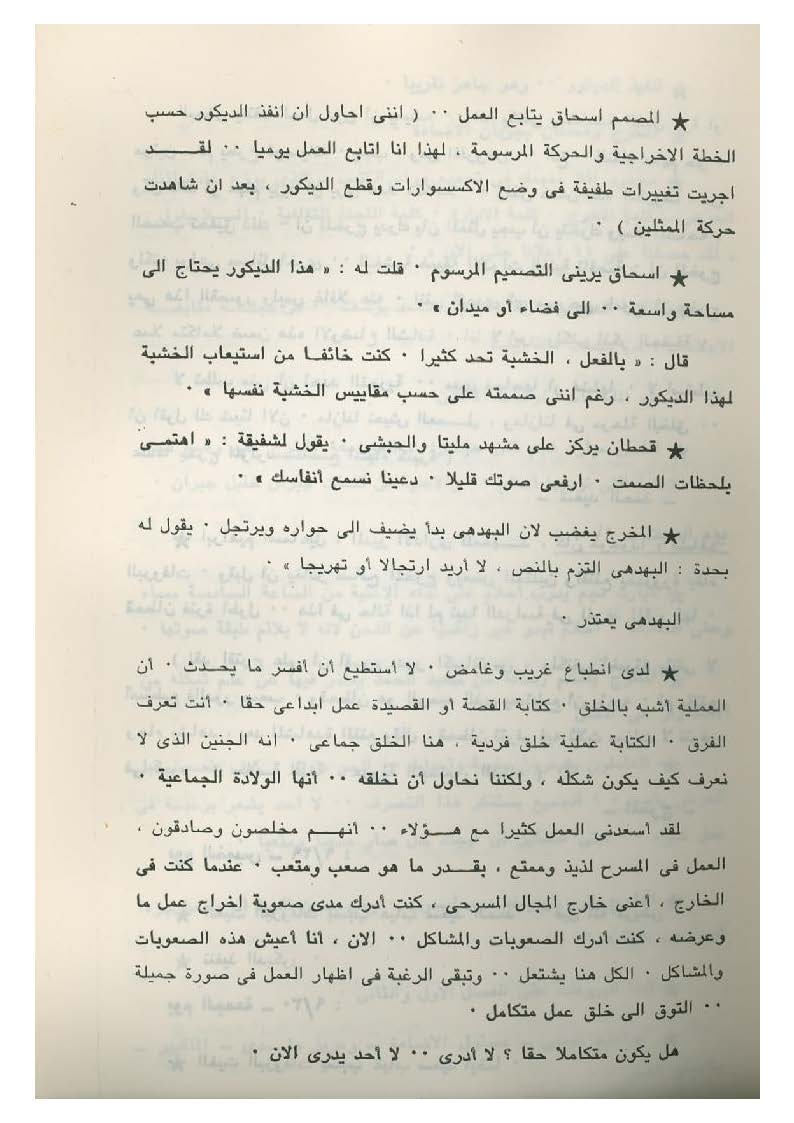 ★ المصمم اسحاق يتابع العمل ٠٠ ( اننى احاول ان انفذ الديكور حسب
الخطة الاخراجية والحركة المرسومة ، لهذا انا اتابع العمل يوميا ٠٠ لقـــــد
اجريت تغييرات طفيفة فى وضع الاكسسوارات وقطع الديكور ، بعد ان شاهدت
حركة الممثلين ) ٠
★ اسحاق يرينى التصميم المرسوم ٠ قلت له : « هذا الديكور يحتاج الى
مساحة واسعة ٠٠ الى فضاء أو ميدان » ٠
قال : « بالفعل ، الخشبة تحد كثيرا ٠ كنت خائفـا من استيعاب الخشبة
لهذا الديكور ، رغم اننى صممته على حسب مقاييس الخشبة نفسها » ٠
★ قحطان يركز على مشهد مليتا والحبشى ٠ يقول لشفيقة : « اهتمـى
بلحظات الصمت ٠ ارفعى صوتك قليلا ٠ دعينا نسمع أنفاسك » ٠
★ المخرج يغضب لان البهدهى بدأ يضيف الى حواره ويرتجل ٠ يقول له
بحدة : البهدهى التزم بالنص ، لا أريد ارتجالا أو تهريجا » ٠
البهدهى يعتذر ٠
★ لدى انطباع غريب وغامض ٠ لا أستطيع أن أفسر ما يحـدث ٠ أن
العملية أشبه بالخلق ٠ كتابة القصة أو القصيدة عمل ابداعى حقا ٠ أنت تعرف
الفرق ٠ الكتابة عملية خلق فردية ، هنا الخلق جماعى ٠ انه الجنين الذى لا
نعرف كيف يكون شكله ، ولكننا نحاول أن نخلقه ٠٠ أنها الولادة الجماعية ٠
لقد أسعدنى العمل كثيرا مع هــؤلاء ٠٠ أنهــم مخلصون وصادقون ،
العمل فى المسرح لذيذ وممتع ، بقــدر ما هو صعب ومتعب ٠ عندما كنت فى
الخارج ، أعنى خارج المجال المسرحى ، كنت أدرك مدى صعوبة اخراج عمل ما
وعرضه ، كنت أدرك الصعوبات والمشاكل ٠٠ الان ، أنا أعيش هذه الصعوبات
والمشاكل ٠ الكل هنا يشتعل ٠٠ وتبقى الرغبة فى اظهار العمل فى صورة جميلة
٠٠ التوق الى خلق عمل متكامل ٠
هل يكون متكاملا حقا ؟ لا أدرى ٠٠ لا أحد يدرى الان ٠